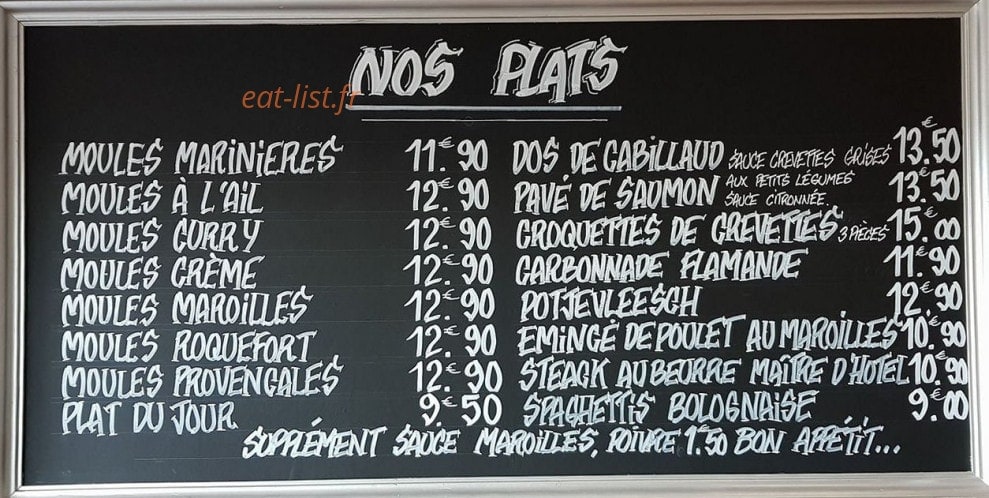 NOS PLATS
eat-list.fr
MOULES MARINIERES 11.€90
MOULES À L'AIL 12.€90
MOULES CURRY 12.€90
MOULES CRÈME 12.€90
MOULES MAROILLES 12.€90
MOULES ROQUEFORT 12.€90
MOULES PROVENCALES 12.€90
PLAT DU JOUR 9.€50
DOS DE CABILLAUD SAUCE CREVETTES GRISES 13.€50
PAVÉ DE SAUMON AUX PETITS LÉGUMES 13.€50
SAUCE CITRONNÉE.
CROQUETTES DE CREVETTES 3 PIÈCES 15.€00
CARBONNADE FLAMANDE 11.€90
POTJEVLEESCH 12.€90
EMINGÉ DE POULET AU MAROILLES 10.€90
STEACK AU BEURRE MAÎTRE D'HOTEL 10.€90
SPAGHETTIS BOLOGNAISE 9.€00
SUPPLÉMENT SAUCE MAROILLES, POIVRE 1.€50 BON APPÉTIT...